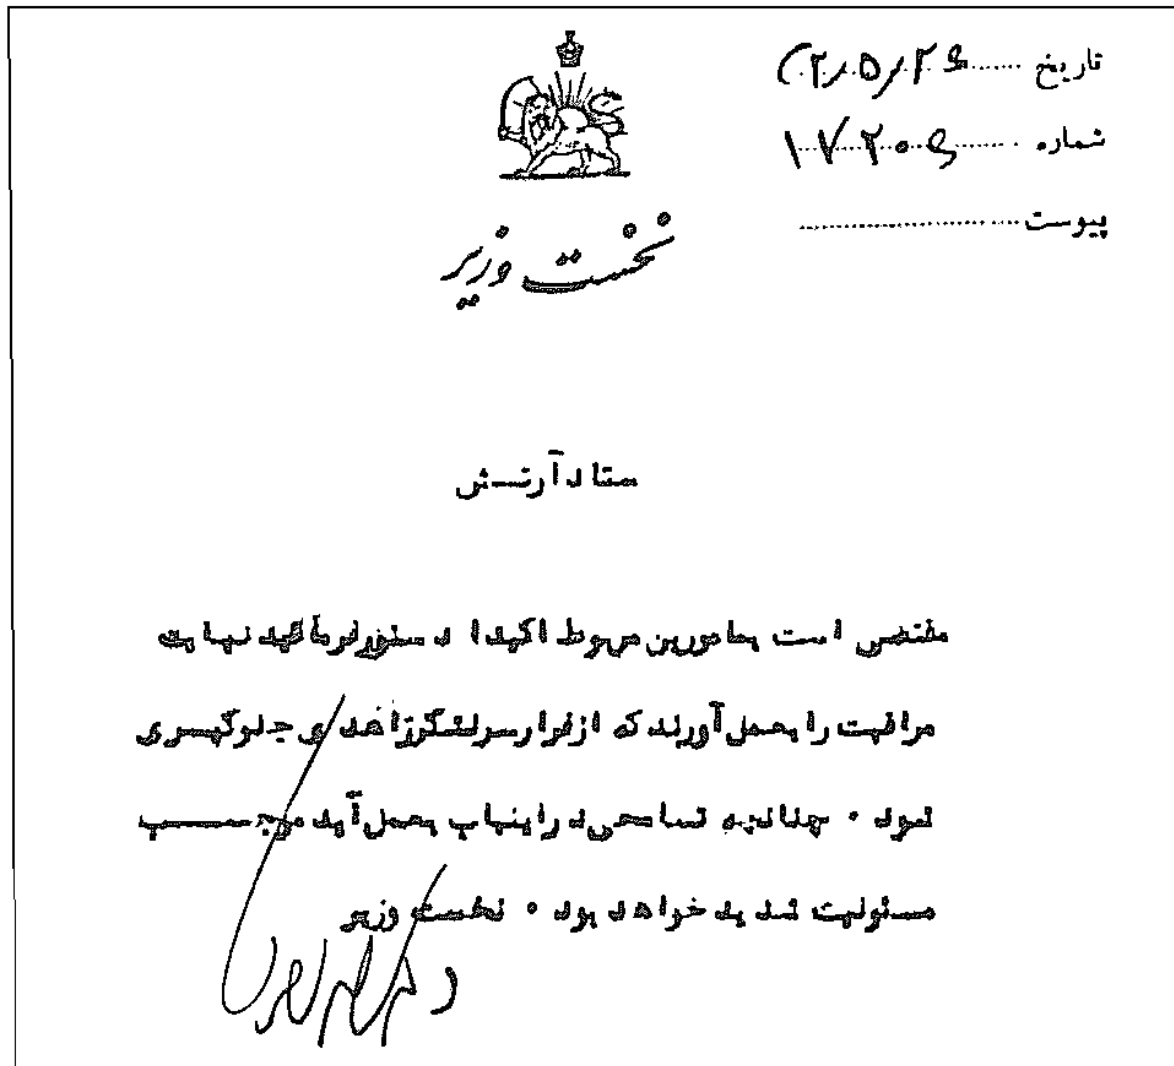 تاریخ ۳۲/۵/۲۶
شماره ۱۷۲۰۶
پیوست
نخست وزیر
ستاد آرتش
مقتضی است بمامورین مربوط اکیدا دستور فرمائید نهایت
مراقبت را بعمل آورند که از فرار سرلشکر زاهدی جلوگیری
شود ۰ چنانچه تسامحی در اینباب بعمل آید موجب
مسئولیت شدید خواهد بود ۰ نخست وزیر
دکتر محمد مصدق